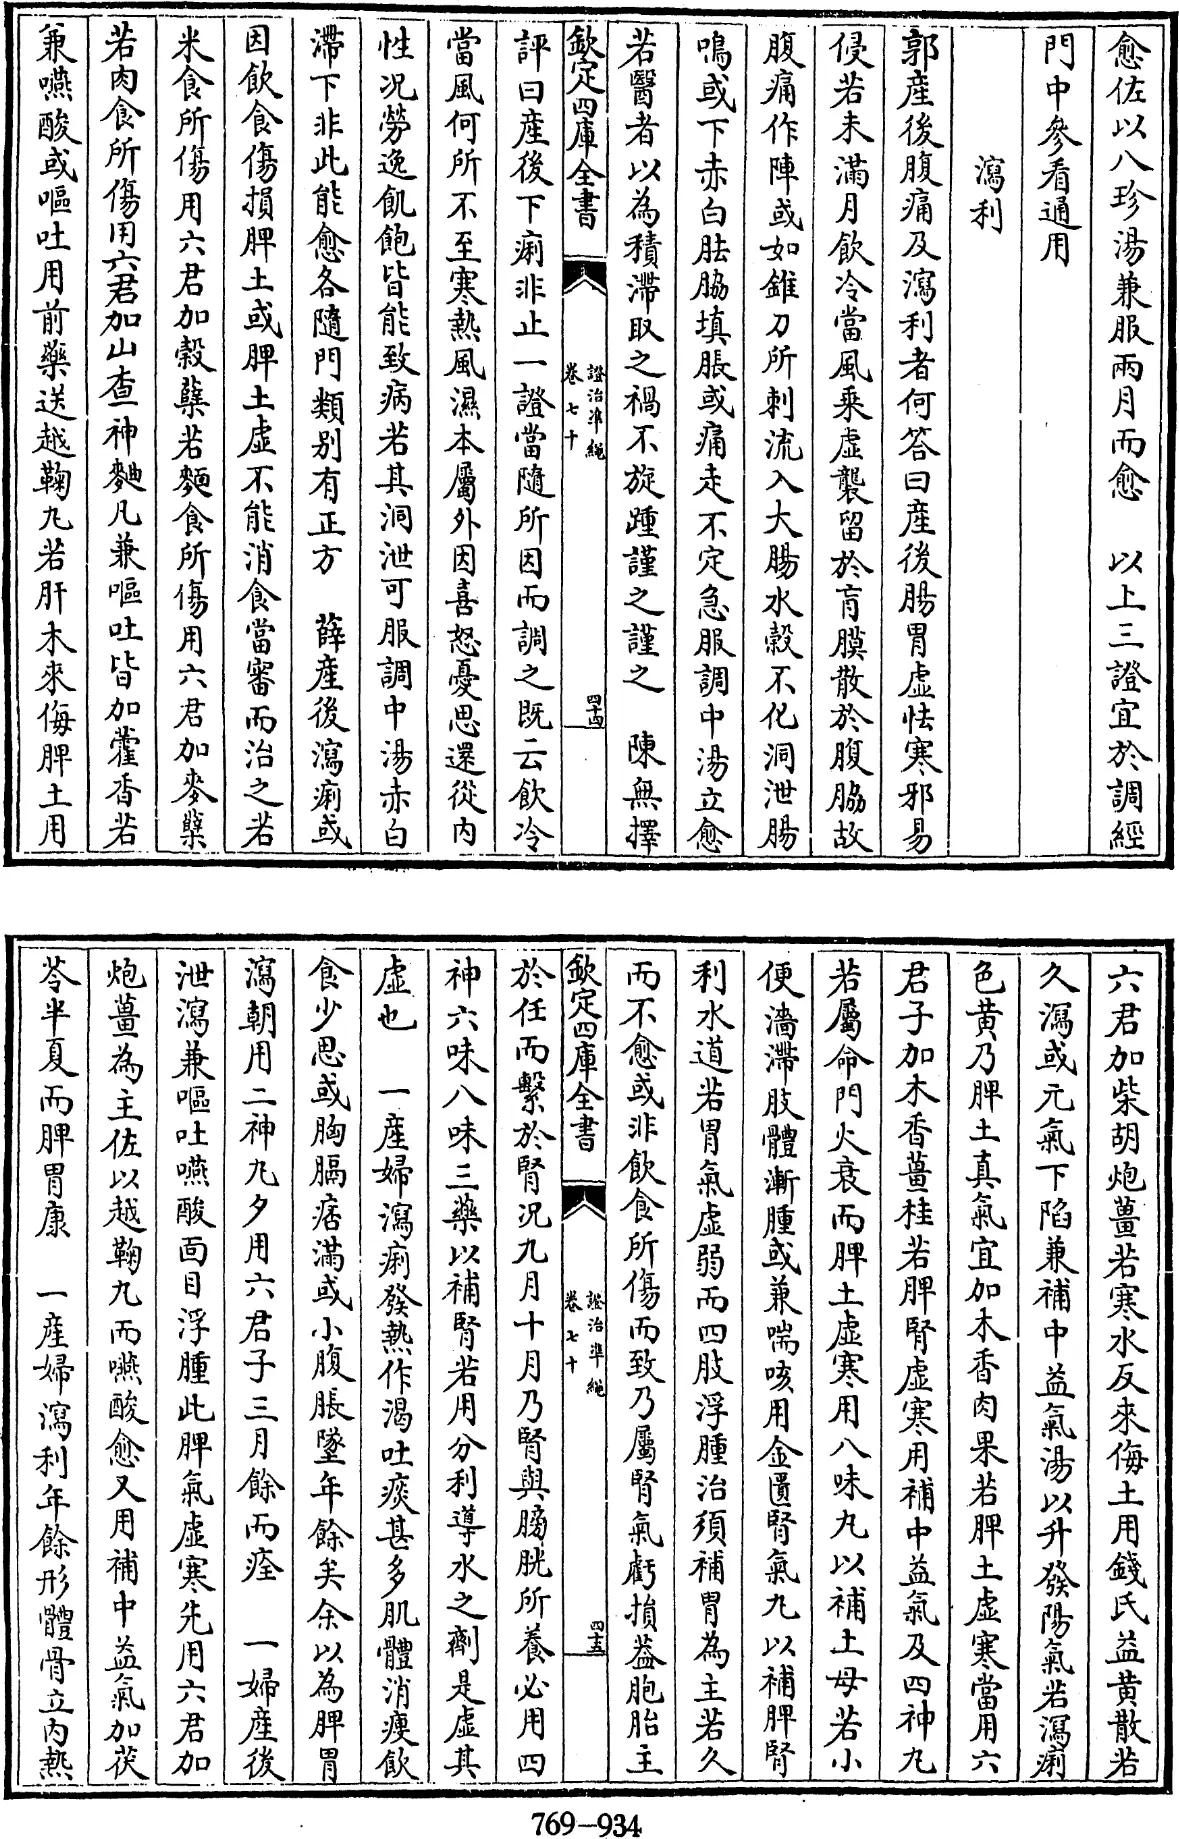 愈佐以八珍湯兼服兩月而愈　以上三證宜於調經
門中參看通用
瀉利
郭産後腹痛及瀉利者何答曰産後腸胃虛怯寒邪易
侵若未滿月飲冷當風乘虛襲留於肓膜散於腹脇故
腹痛作陣或如錐刀所刺流入大腸水穀不化洞泄腸
鳴或下赤白胠脇填脹或痛走不定急服調中湯立愈
若醫者以為積滯取之禍不旋踵謹之謹之　陳無擇
欽定四庫全書　證治準繩　卷七十　四十四
評曰産後下痢非止一證當隨所因而調之既云飲冷
當風何所不至寒熱風濕本屬外因喜怒憂思還從内
性况勞逸飢飽皆能致病若其洞泄可服調中湯赤白
滯下非此能愈各隨門類别有正方　薛産後瀉痢或
因飲食傷損脾土或脾土虛不能消食當審而治之若
米食所傷用六君加穀蘖若麵食所傷用六君加麥蘖
若肉食所傷用六君加山查神麯凡兼嘔吐皆加藿香若
兼嚥酸或嘔吐用前藥送越鞠丸若肝木來侮脾土用
六君加柴胡炮薑若寒水反來侮土用錢氏益黄散若
久瀉或元氣下陷兼補中益氣湯以升發陽氣若瀉痢
色黄乃脾土真氣宜加木香肉果若脾土虛寒當用六
君子加木香薑桂若脾腎虛寒用補中益氣及四神丸
若屬命門火衰而脾土虛寒用八味丸以補土母若小
便濇滯肢體漸腫或兼喘咳用金匱腎氣丸以補脾腎
利水道若胃氣虛弱而四肢浮腫治須補胃為主若久
而不愈或非飲食所傷而致乃屬腎氣虧損蓋胞胎主
欽定四庫全書　證治準繩　卷七十　四十五
於任而繫於腎况九月十月乃腎與膀胱所養必用四
神六味八味三藥以補腎若用分利導水之劑是虛其
虛也　一産婦瀉痢發熱作渴吐痰甚多肌體消瘦飲
食少思或胸膈痞滿或小腹脹墜年餘矣余以為脾胃
瀉朝用二神丸夕用六君子三月餘而痊　一婦産後
泄瀉兼嘔吐嚥酸面目浮腫此脾氣虛寒先用六君加
炮薑為主佐以越鞠丸而嚥酸愈又用補中益氣加茯
苓半夏而脾胃康　一産婦瀉利年餘形體骨立内熱
769-934